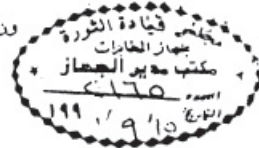 مجلس قيادة الثورة
جهاز المخابرات
مكتب مدير الجهاز
العدد ٢١٦٥
التاريخ ١٥ / ٩ / ١٩٩